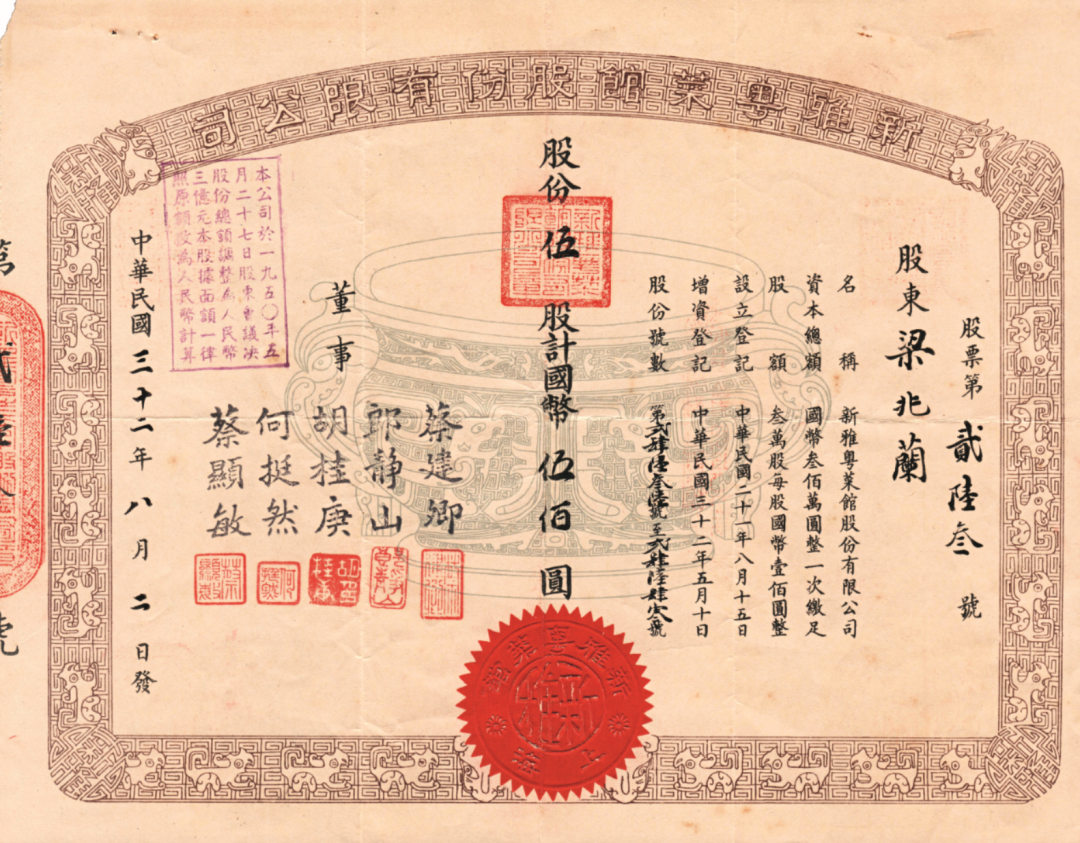 新雅粵菜館股份有限公司
股票第貳陸叁號
股東梁兆蘭
名稱 新雅粵菜館股份有限公司
資本總額 國幣叁佰萬圓整一次繳足
股額 叁萬股每股國幣壹佰圓整
設立登記 中華民國二十一年八月十五日
增資登記 中華民國三十二年五月十日
股份號數 第貳肆陸叁陸號至貳肆陸肆零號
股份伍股計國幣伍佰圓
董事
蔡建卿
郎靜山
胡桂庚
何挺然
蔡顯敏
本公司於一九五〇年五
月二十七日股東會議決
股份總額調整為人民幣
三億元本股據面額一律
照原額改為人民幣計算
中華民國三十二年八月二日發
新雅粵菜館
上海
新雅